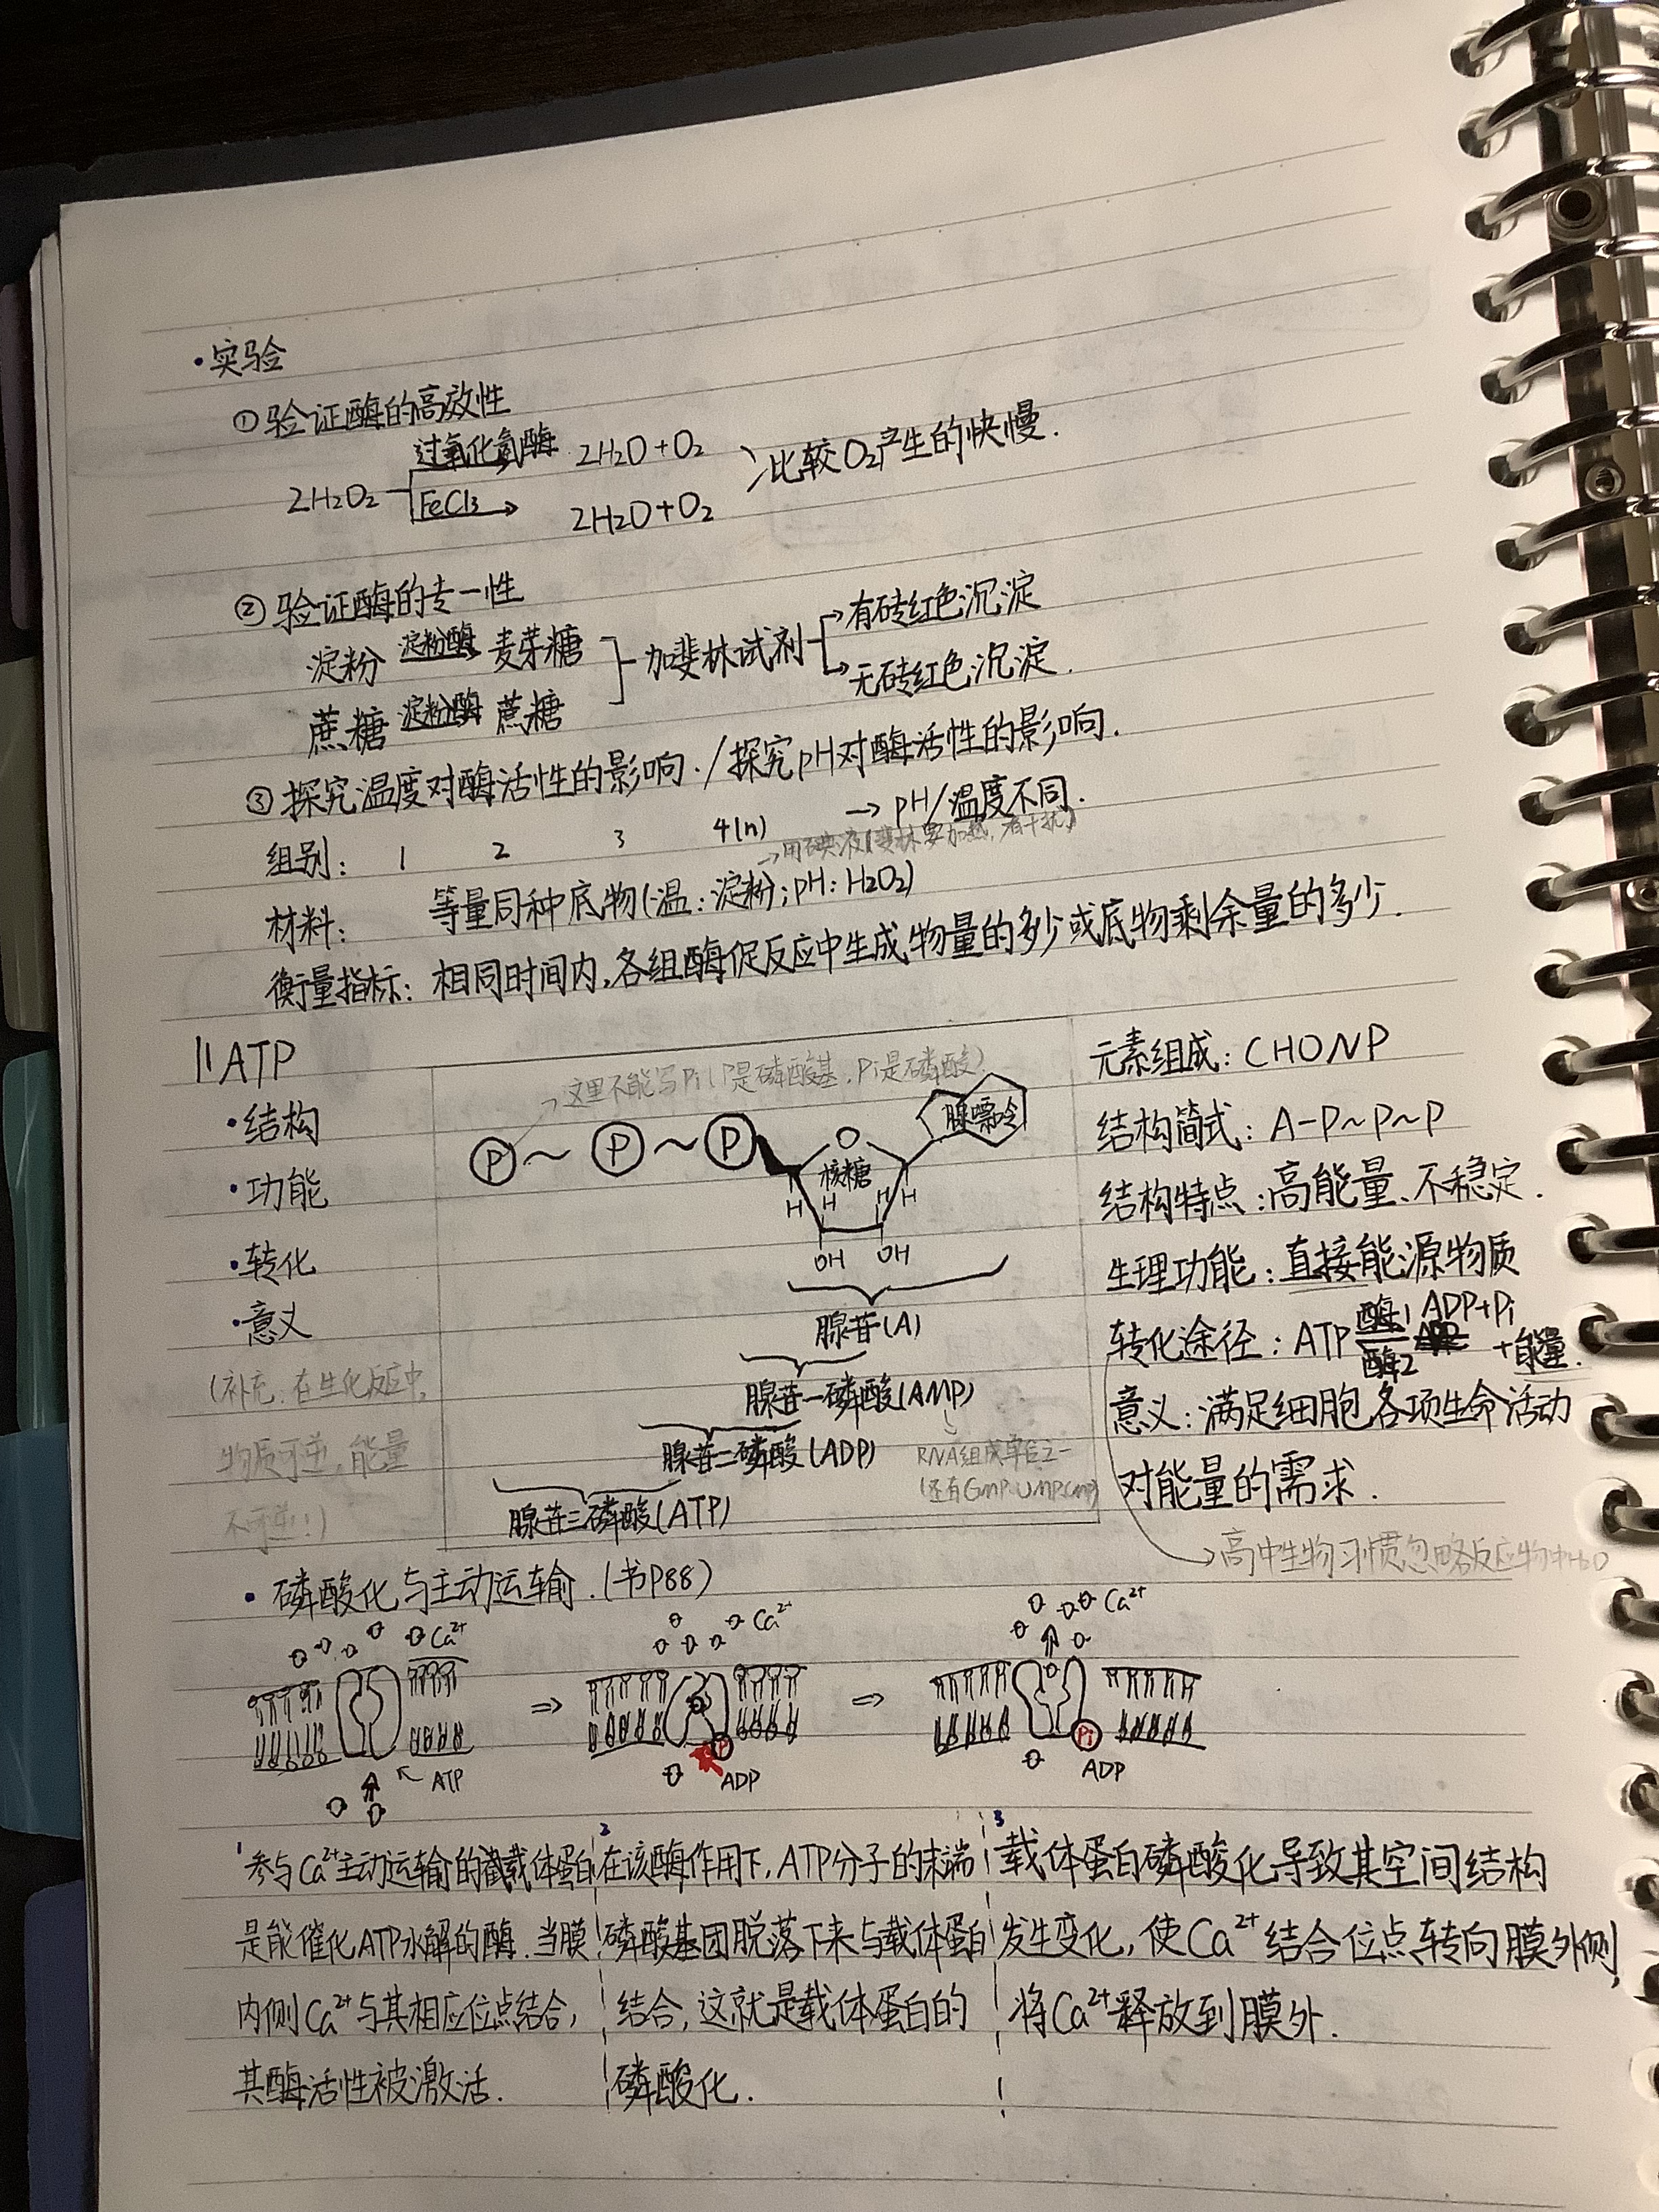 ·实验
①验证酶的高效性
过氧化氢酶 2H₂O+O₂
2H₂O₂ 比较O₂产生的快慢.
FeCl₃ 2H₂O+O₂
②验证酶的专一性
淀粉 淀粉酶 麦芽糖 加斐林试剂 有砖红色沉淀
蔗糖 淀粉酶 蔗糖 无砖红色沉淀.
③探究温度对酶活性的影响./探究pH对酶活性的影响.
组别: 1 2 3 4(n) → pH/温度不同.
→用碘液(斐林要加热,有干扰)
材料: 等量同种底物(温:淀粉;pH:H₂O₂)
衡量指标: 相同时间内,各组酶促反应中生成物量的多少或底物剩余量的多少.
II ATP
·结构
·功能
·转化
·意义
(补充:在生化反应中,
物质可逆,能量
不可逆!)
→这里不能写Pi(P是磷酸基,Pi是磷酸)
P ~ P ~ P O 核糖 腺嘌呤
H H H H
OH OH
腺苷(A)
腺苷一磷酸(AMP)
腺苷二磷酸(ADP)
RNA组成单位之一
(还有GMP.UMP.CMP)
腺苷三磷酸(ATP)
元素组成: CHONP
结构简式: A-P~P~P
结构特点:高能量、不稳定.
生理功能:直接能源物质
转化途径: ATP 酶1 酶2 ADP+Pi +能量.
意义:满足细胞各项生命活动
对能量的需求.
→高中生物习惯忽略反应物中H₂O
· 磷酸化与主动运输.(书P88)
Ca²⁺ Ca²⁺ Ca²⁺
⇒ ⇒
ATP P ADP Pi ADP
1 参与Ca²⁺主动运输的载体蛋白
是能催化ATP水解的酶.当膜
内侧Ca²⁺与其相应位点结合,
其酶活性被激活.
2 在该酶作用下,ATP分子的末端
磷酸基团脱落下来与载体蛋白
结合,这就是载体蛋白的
磷酸化.
3 载体蛋白磷酸化导致其空间结构
发生变化,使Ca²⁺结合位点转向膜外侧,
将Ca²⁺释放到膜外.